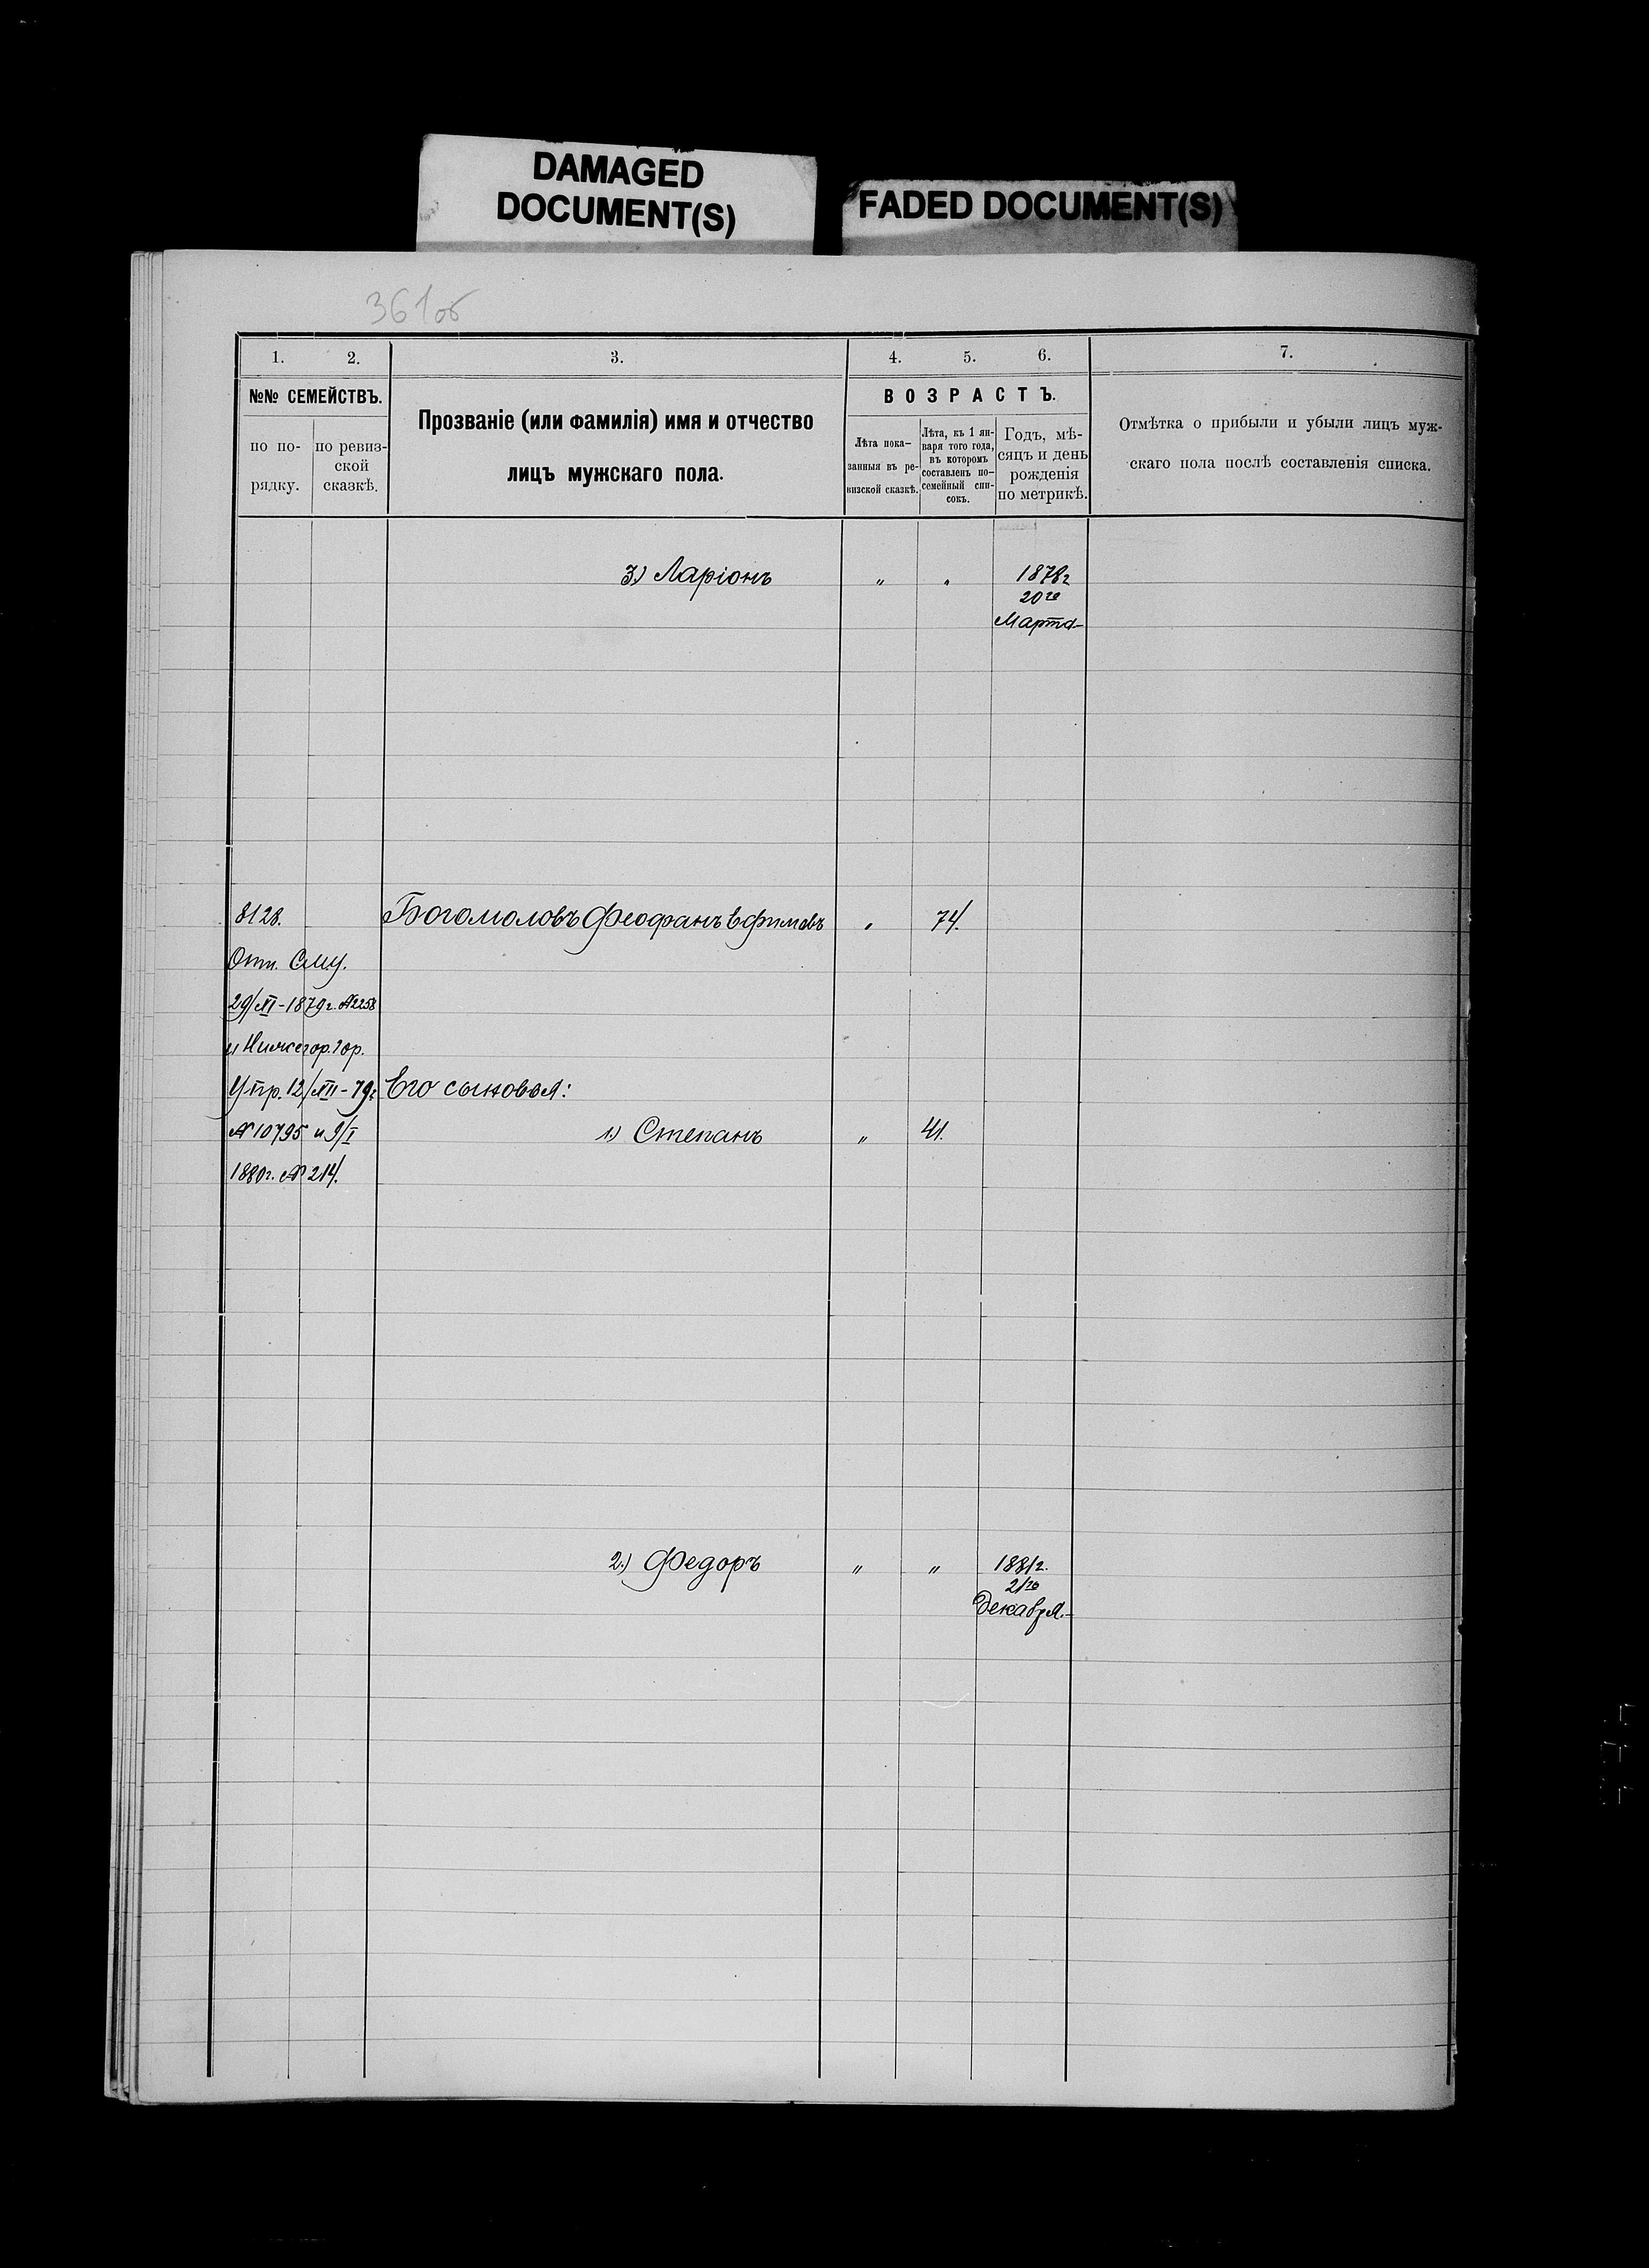 DAMAGED
DOCUMENT(S)
FADED DOCUMENT(S)
361об
1. 2. 3. 4. 5. 6. 7.
№№ СЕМЕЙСТВЪ.
по по-
рядку.
по ревиз-
ской
сказкѣ.
Прозваніе (или фамилія) имя и отчество
лицъ мужскаго пола.
ВОЗРАСТЪ.
Лѣта пока-
занныя въ ре-
визской сказкѣ.
Лѣта, къ 1 ян-
варя того года,
въ которомъ
составленъ по-
семейный спи-
сокъ.
Годъ, мѣ-
сяцъ и день
рожденія
по метрикѣ.
Отмѣтка о прибыли и убыли лицъ муж-
скаго пола послѣ составленія списка.
3.) Ларіонъ " " 1878г
20го
Марта-
8128. Богомоловъ Феофанъ Ефимовъ " 74.
Отн. С.М.У.
29/XI-1879г. №2258
и Нижегор. Гор.
Упр. 12/XII-79г Его сыновья:
№ 10795 и 9/I 1.) Степанъ " 41.
1880г. № 214.
2.) Федоръ " " 1881г.
21го
Декабря.-